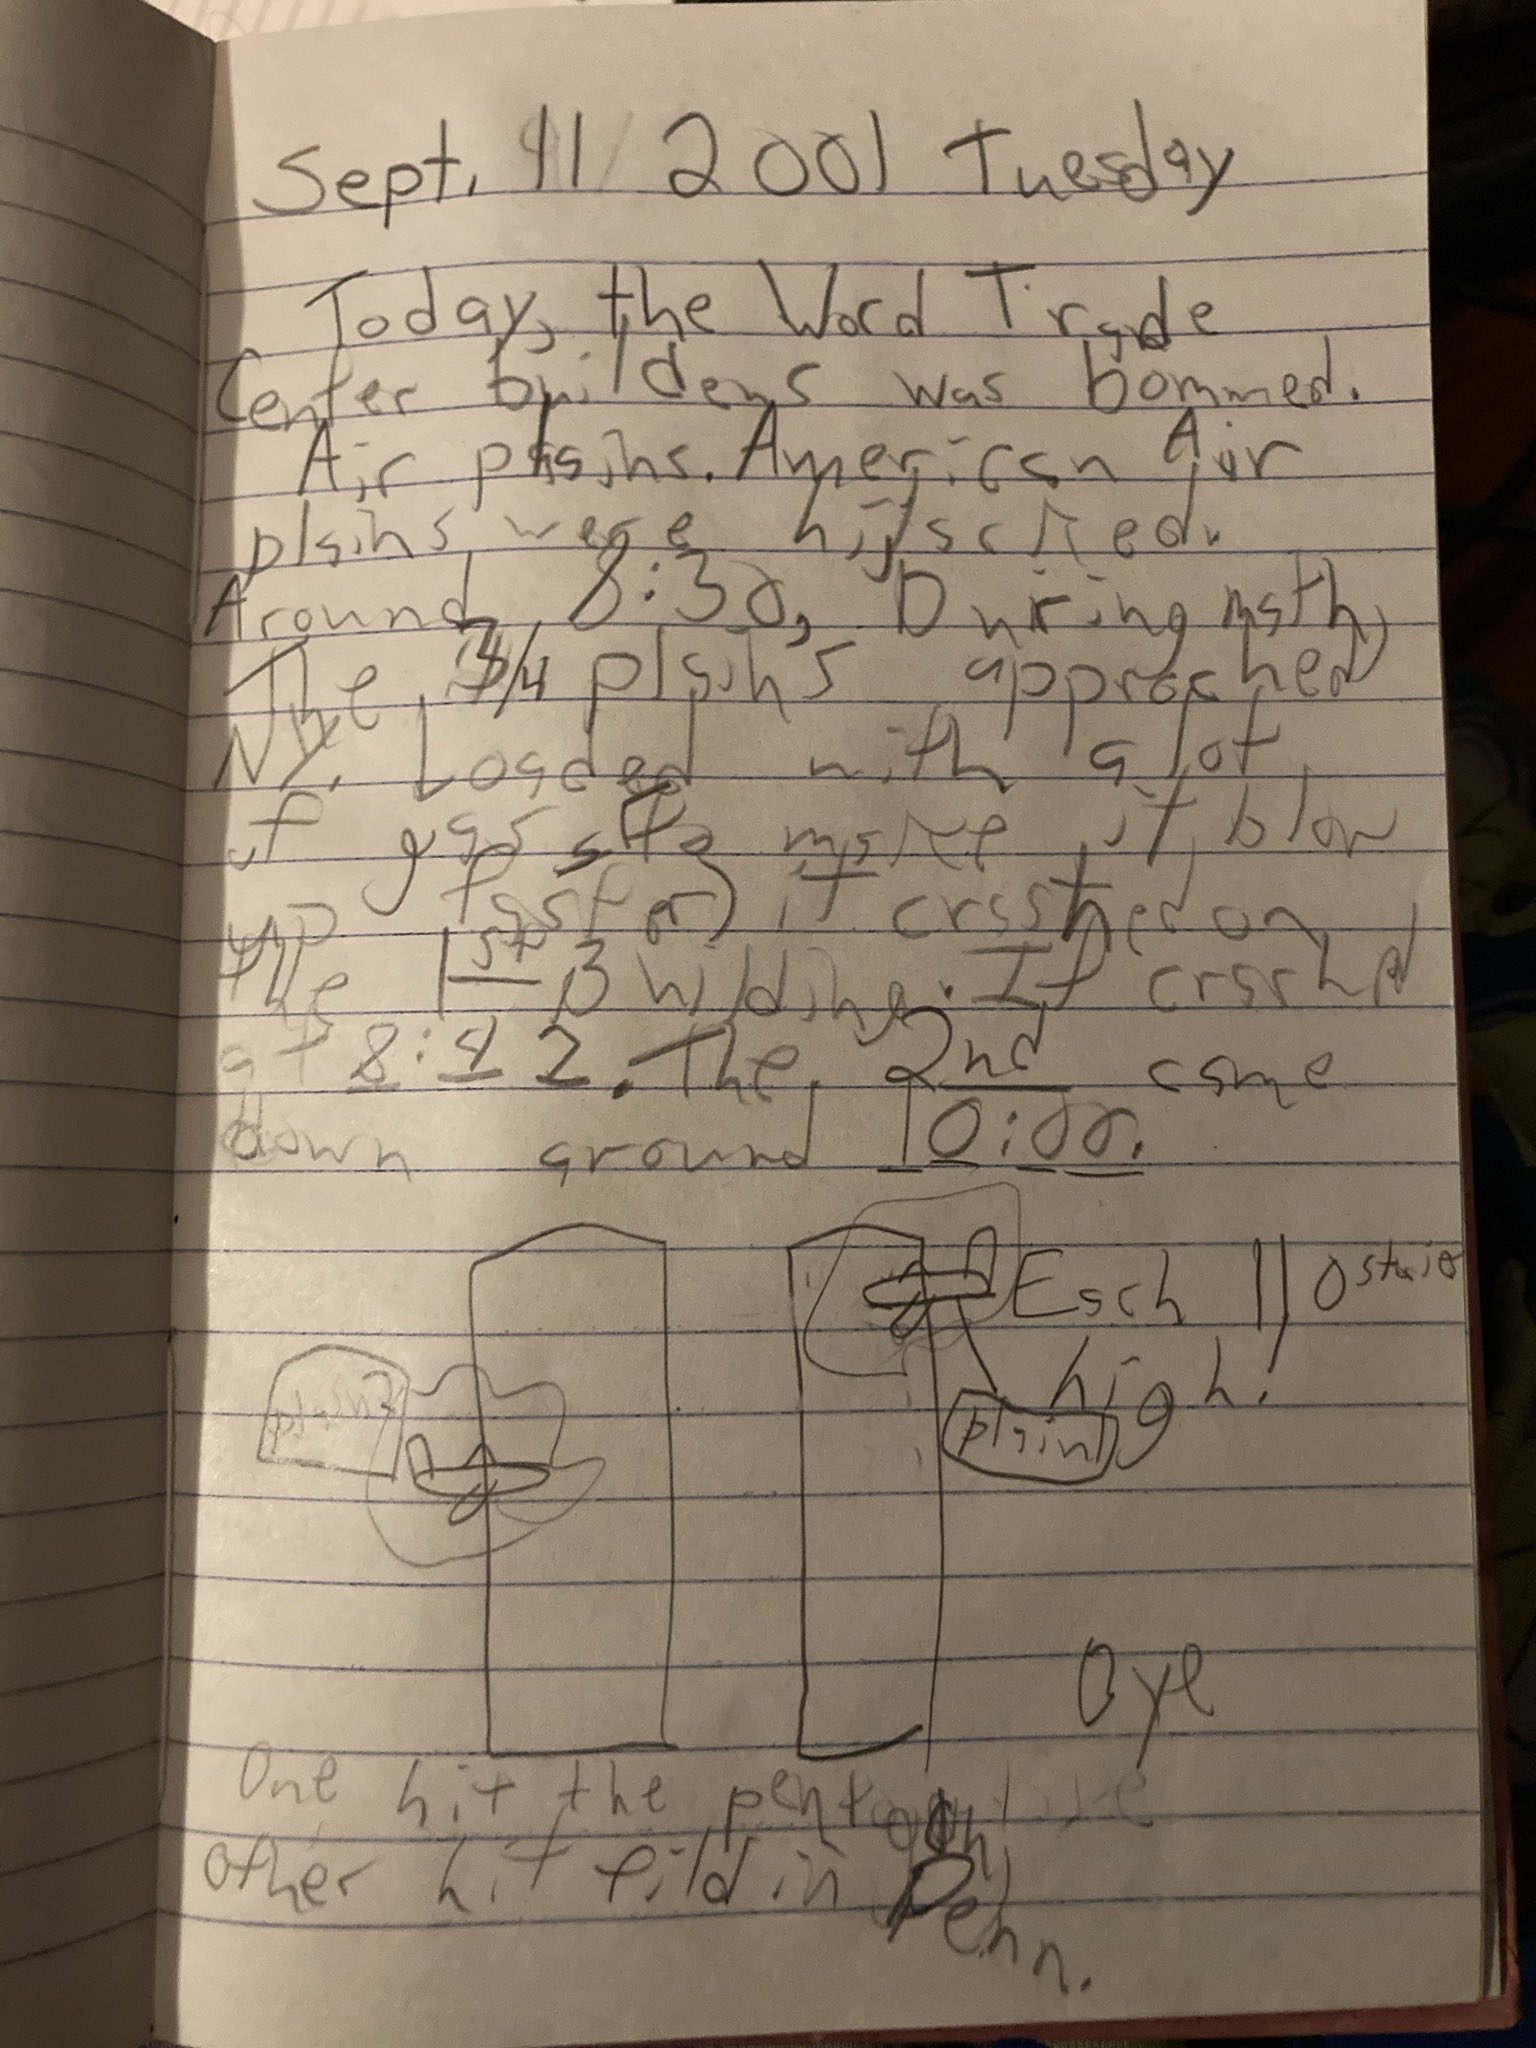 Sept. 11 / 2001 Tuesday
Today, the Word Trade
Center buildens was bommed.
Air plains. American Air
plains were hijacked.
Around 8:30, During math,
The 3/4 plains approached
NY. Loaded with a lot
of gas to make it blow
up faster) it crashed on
the 1st Building. It crashed
at 8:42. The 2nd came
down around 10:00.
Each 110 
high!
plain2
plain1
Oye
One hit the pentagon,
other hit fild in Penn.